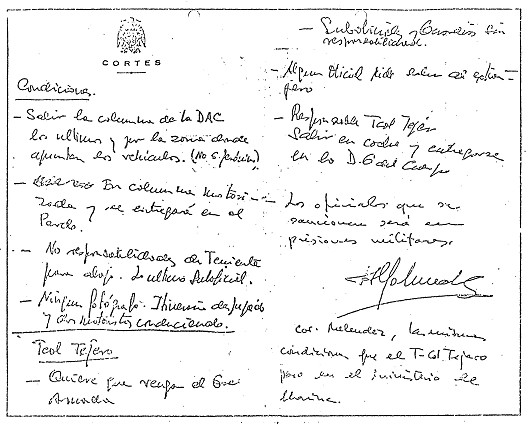 CORTES
Condiciones.
- Salir la columna de la DAC
los ultimos y por la zona donde
apuntan los vehículos. (No S. Jerónimo)
- En columna motori-
zada y se entregará en el
Pardo.
- No responsabilidades de Teniente
para abajo. Suboficial.
- Ningun fotógrafo. Itinerario despejado
y dos motoristas conduciendo.
Tcol Tejero
- Quiere que venga el Gral
Armada
- Suboficiales y Guardias sin
responsabilidades.
- Algun Oficial pide salir al extran-
jero
- Responsable Tcol Tejero
Salir en coche y entregarse
en la D.G. del Cuerpo
- Los oficiales que se
sancionen será en
prisiones militares.
Melendez, las mismas
condiciones que el T-Col Tejero
pero en el ministerio de
Marina.